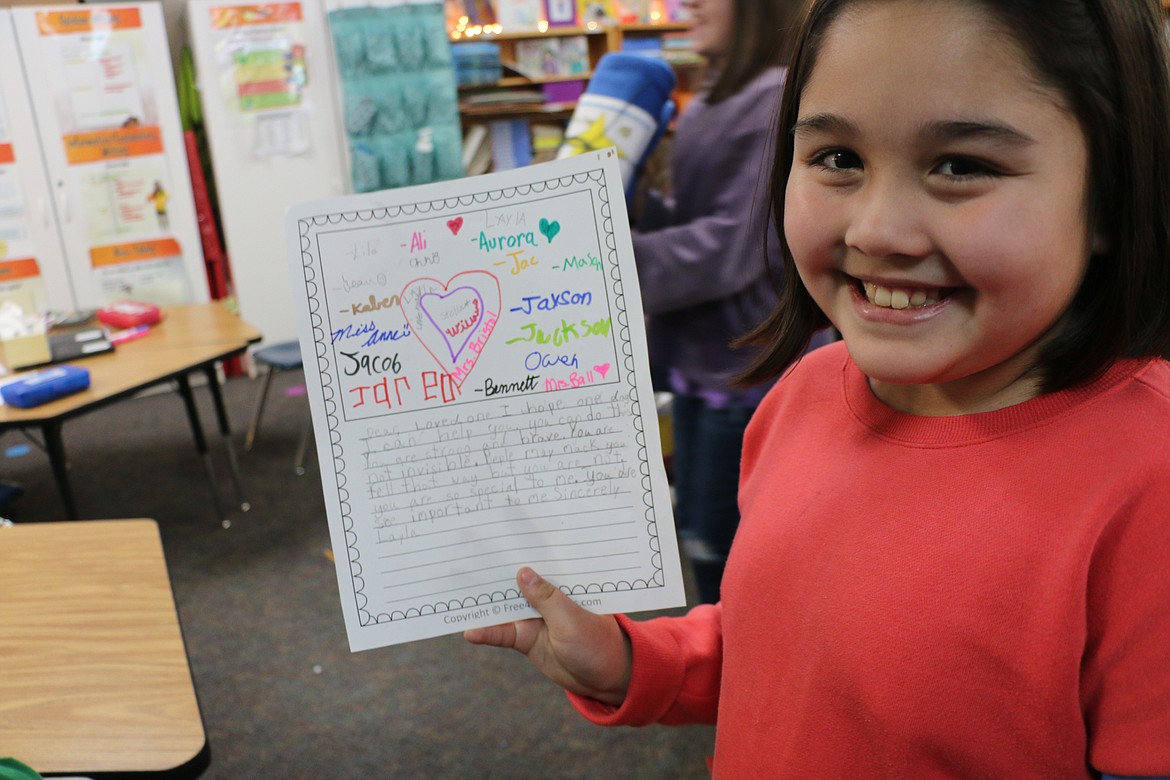 LAYLA
-Ali
-Aurora
Chris
-Jac
-Mason
-Kaleb
-Jaxson
Miss Anne
Mrs. Bristol
-Juckson
Jacob
Owen
Jareo
-Bennett
Mrs. Ball
Dear Loved one I shope one day
I can help you, you can do this
you are strong and brave. You are
not invisible. Peple may mack you
fell that way but you are not.
you are so special to me. you are
so important to me Sincerely
Layla
Copyright © Free
.com